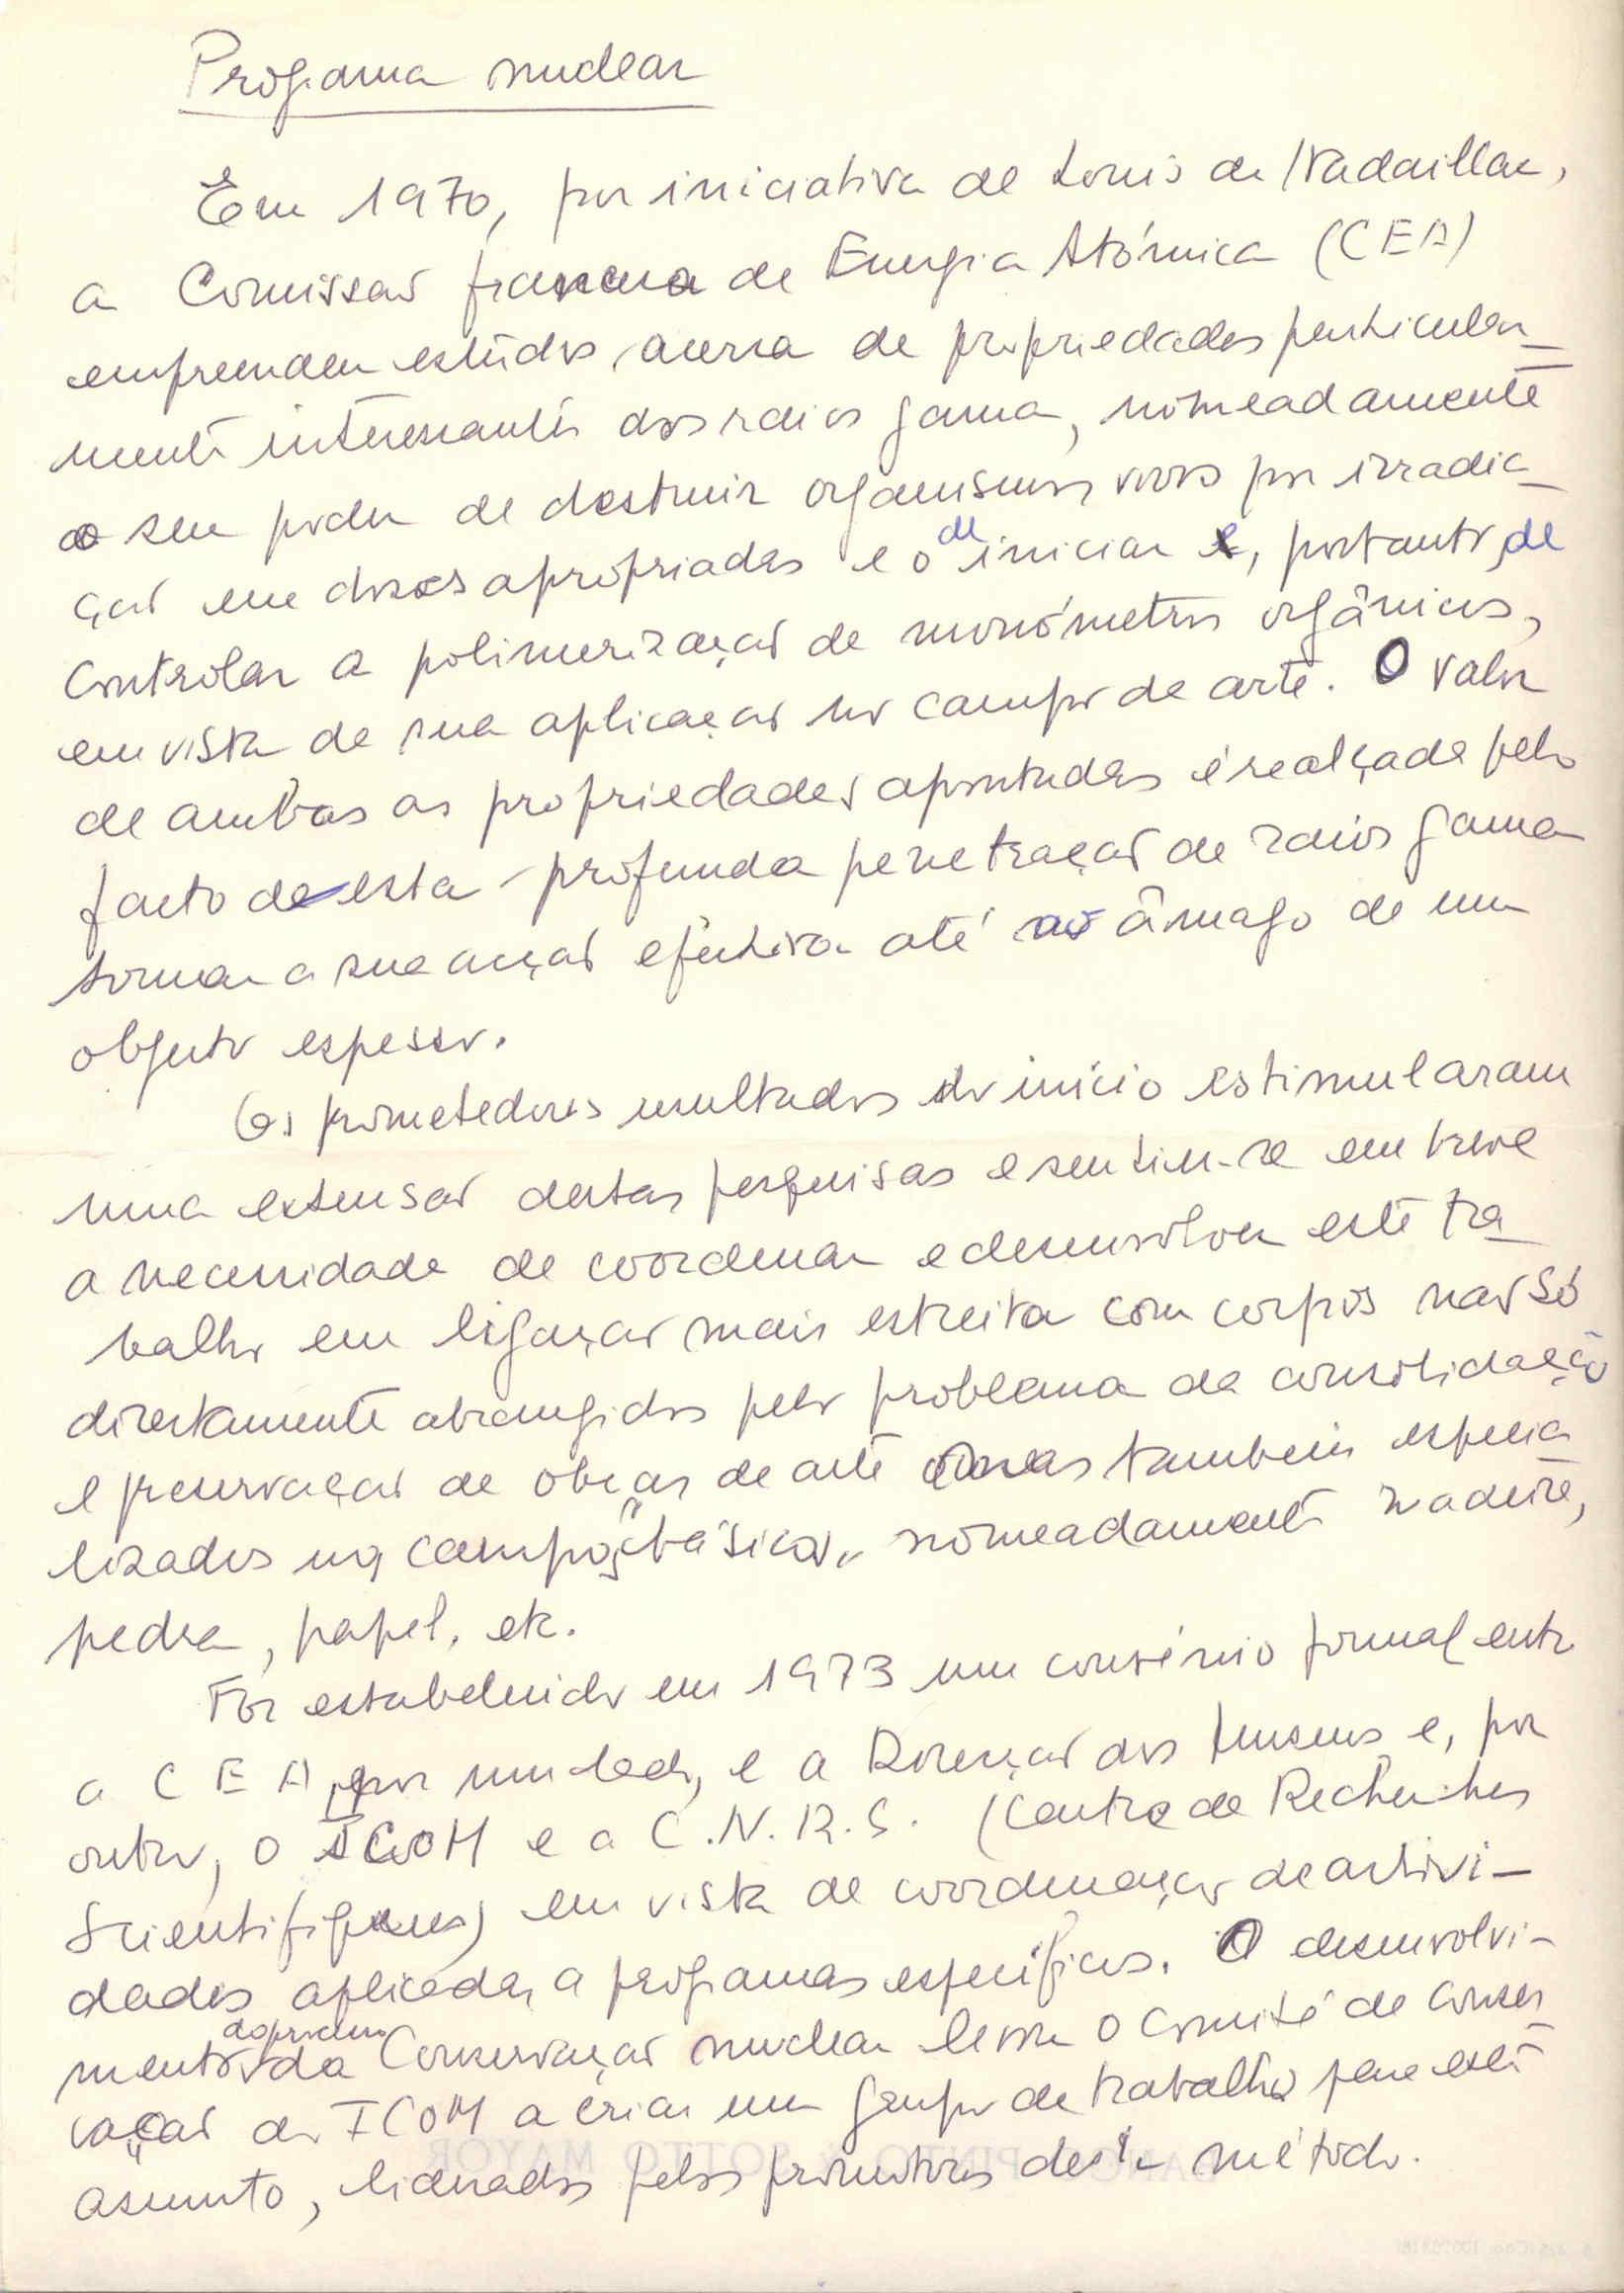 Programa nuclear
Em 1970, por iniciativa de Louis de Nadaillac,
a Comissão francesa de Energia Atómica (CEA)
empreendeu estudos acerca de propriedades particular_
mente interessantes dos raios gama, nomeadamente
o seu poder de destruir organismos vivos por irradia_
ção em doses apropriadas e o de iniciar e, portanto, de
controlar a polimerização de monómetros orgânicos,
em vista de sua aplicação no campo de arte. O valor
de ambas as propriedades apontadas é realçada pelo
facto de esta profunda penetração de raios gama
tornar a sua acção efectiva até ao âmago de um
objecto espesso.
Os prometedores resultados do início estimularam
uma extensão destas pesquisas e sentiu-se em breve
a necessidade de coordenar e desenvolver este tra_
balho em ligação mais estreita com corpos não só
directamente abrangidos pelo problema da consolidação
e preservação de obras de arte mas também especia
lizados nos campos "básicos" nomeadamente madeira,
pedra, papel, etc.
Foi estabelecido em 1973 um convénio formal entre
a CEA, por um lado, e a Direcção dos Museus e, por
outro, o ICOM e a C.N.R.S. (Centre de Recherches
Scientifiques) em vista de coordenação de activi-
dades aplicadas a programas específicos. O desenvolvi-
mento do problema da Conservação nuclear levou o Comité de Conser
vação do ICOM a criar um grupo de trabalho para este
assunto, liderados pelos promotores deste método.
PINTO & SOTTO MAYOR